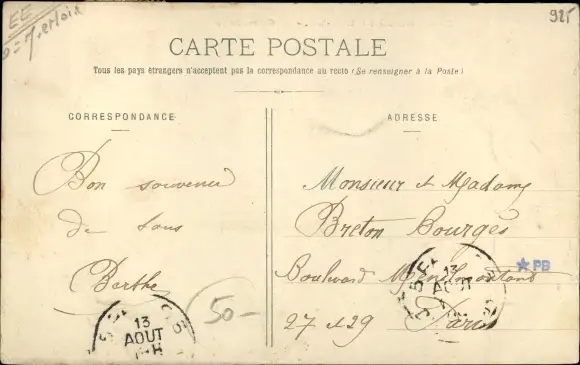 EE
925
CARTE POSTALE
Tous les pays étrangers n'acceptent pas la correspondance au recto (Se renseigner à la Poste)
CORRESPONDANCE
ADRESSE
Bon souvenir
de tous
Berthe
Monsieur et Madame
Breton Bourges
Boulevard Menilmontant
27 et 29 Paris
★ PB
13
AOUT
13
AOUT
50-